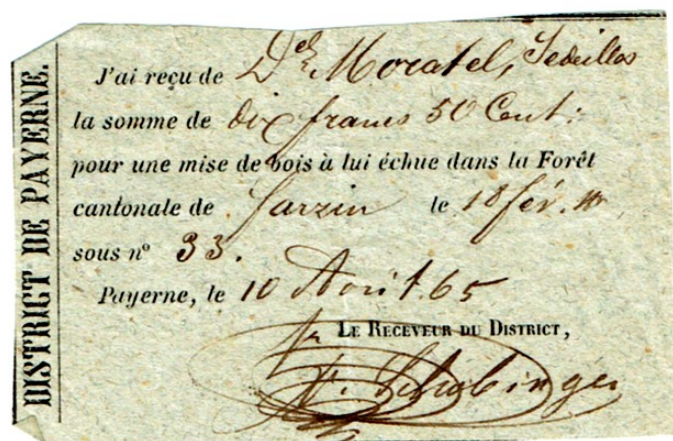 DISTRICT DE PAYERNE.
J'ai reçu de Del Moratel, Sedeilles
la somme de dix francs 50 Cent:
pour une mise de bois à lui échue dans la Forêt
cantonale de Farzin le 18 fév.
sous nº 33.
Payerne, le 10 Avril 65
LE RECEVEUR DU DISTRICT,